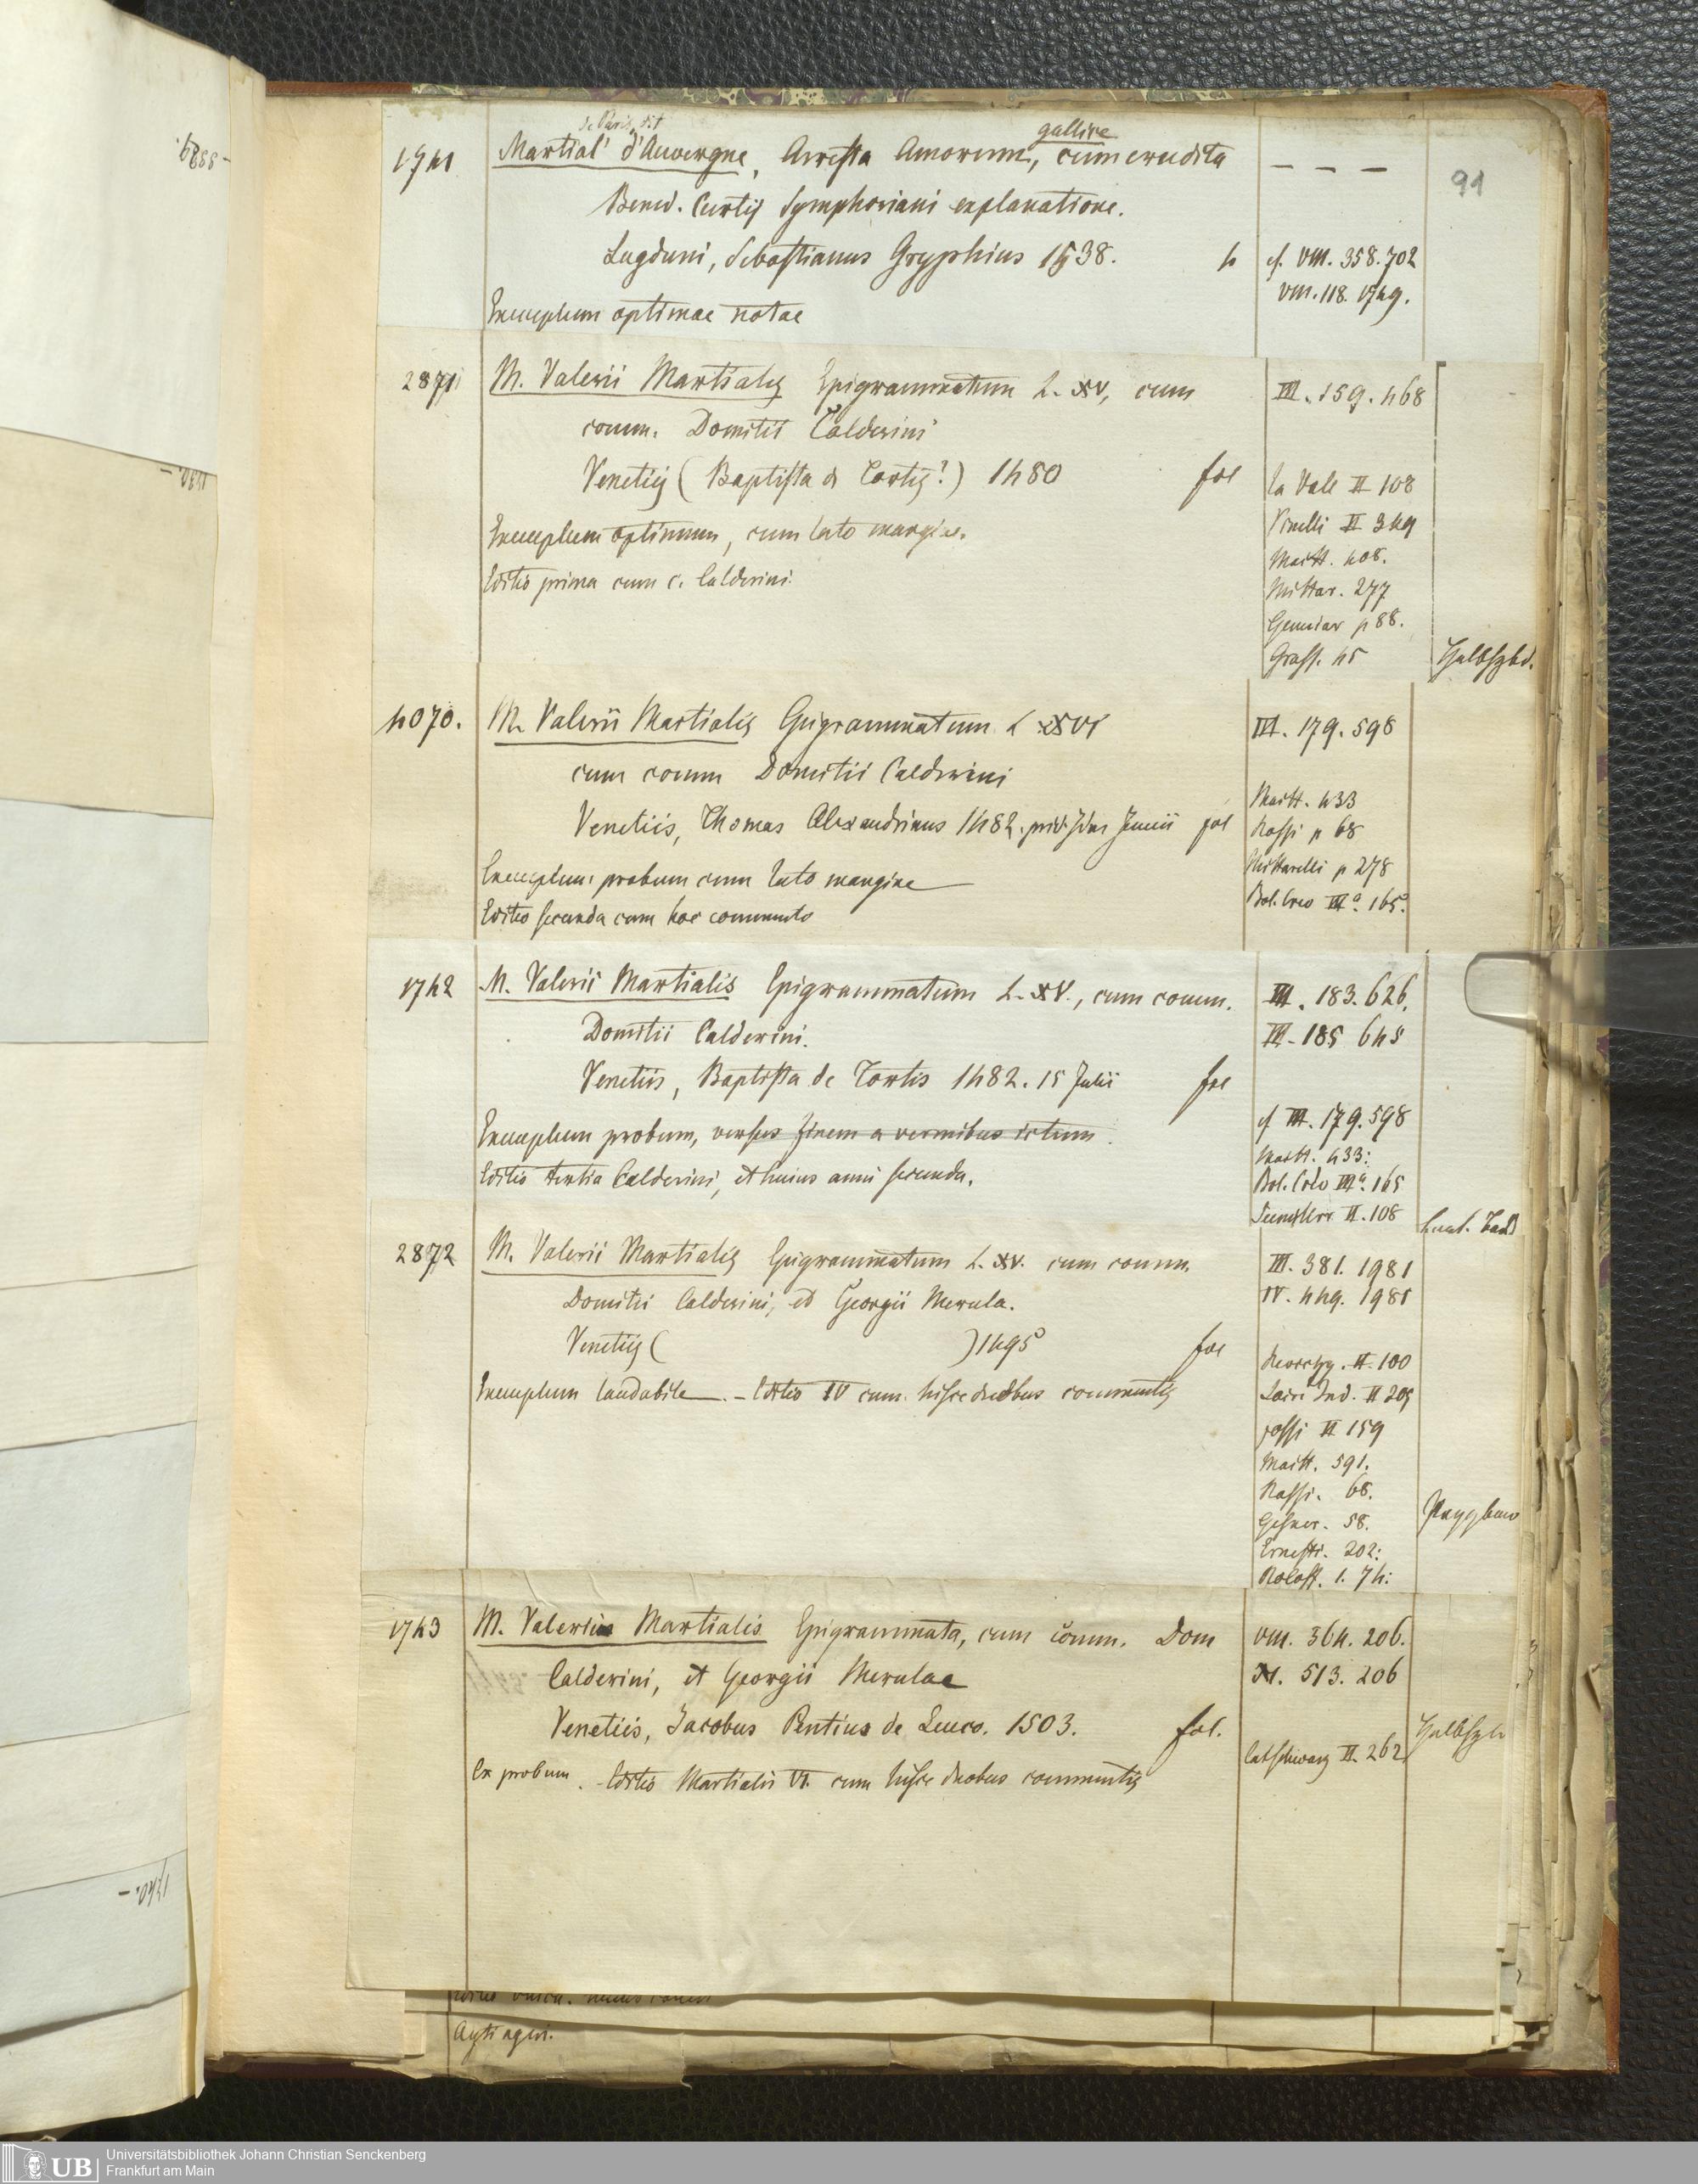 91
de Paris, dit
gallice
1741 Martial d'Auvergne, Arresta Amorum, cum erudita — — —
Bened. Curtij Symphoriani explanatione.
Lugduni, Sebastianus Gryphius 1538. 4 cf. VIII. 358. 702
VIII. 118. 1749.
Exemplum optimae notae
2871 M. Valerii Martialis Epigrammatum L. XV, cum III. 159. 468
comm. Domitii Calderini
Venetiis (Baptista de Tortis?) 1480 fol la Vall II 108
Pinelli II 349
Exemplum optimum, cum lato margine.
Maitt. 408.
Editio prima cum c. Calderini.
Mittar. 277
Gemeiner p 88.
Grass. 45 Halbfzbd.
4070. M. Valerii Martialis Epigrammatum L XVI III. 179. 598
cum comm Domitii Calderini
Maitt. 433
Venetiis, Thomas Alexandrinus 1482. prid. Idus Junii fol Rossi p 68
Mittarelli p 278
Exemplum probum cum lato margine
Bol. Crev III. 165.
Editio secunda cum hoc commento
1742 M. Valerii Martialis Epigrammatum L. XV., cum comm. III. 183. 626.
Domitii Calderini. III. 185 645
Venetiis, Baptista de Tortis 1482. 15 Julii fol
cf III. 179. 598
Exemplum probum, versus finem a vermibus ictum.
Maitt. 433:
Editio tertia Calderini, et huius anni secunda.
Bol. Crev III. 165
II. 108
2872 M. Valerii Martialis Epigrammatum L. XV. cum comm. III. 381. 1981
Domitii Calderini, et Georgii Merula. IV. 449. 1981
Venetiis ( ) 1495 fol
II. 100
Exemplum laudabile. — Editio IV cum hisce duobus commentis
Laire Ind. II 205
Fossi II 159
Maitt. 591.
Rossi. 68.
Gesner. 58.
Ernesti. 202:
Roloff. 1. 74:
1743 M. Valerii Martialis Epigrammata, cum comm. Dom VIII. 364. 206.
Calderini, et Georgii Merulae XI. 513. 206
Venetiis, Jacobus Pentius de Leuco. 1503. fol. Halbfzb
Cat Schwarz II. 262
Ex probum. Editio Martialis VI. cum hisce duobus commentis
UB Universitätsbibliothek Johann Christian Senckenberg
Frankfurt am Main